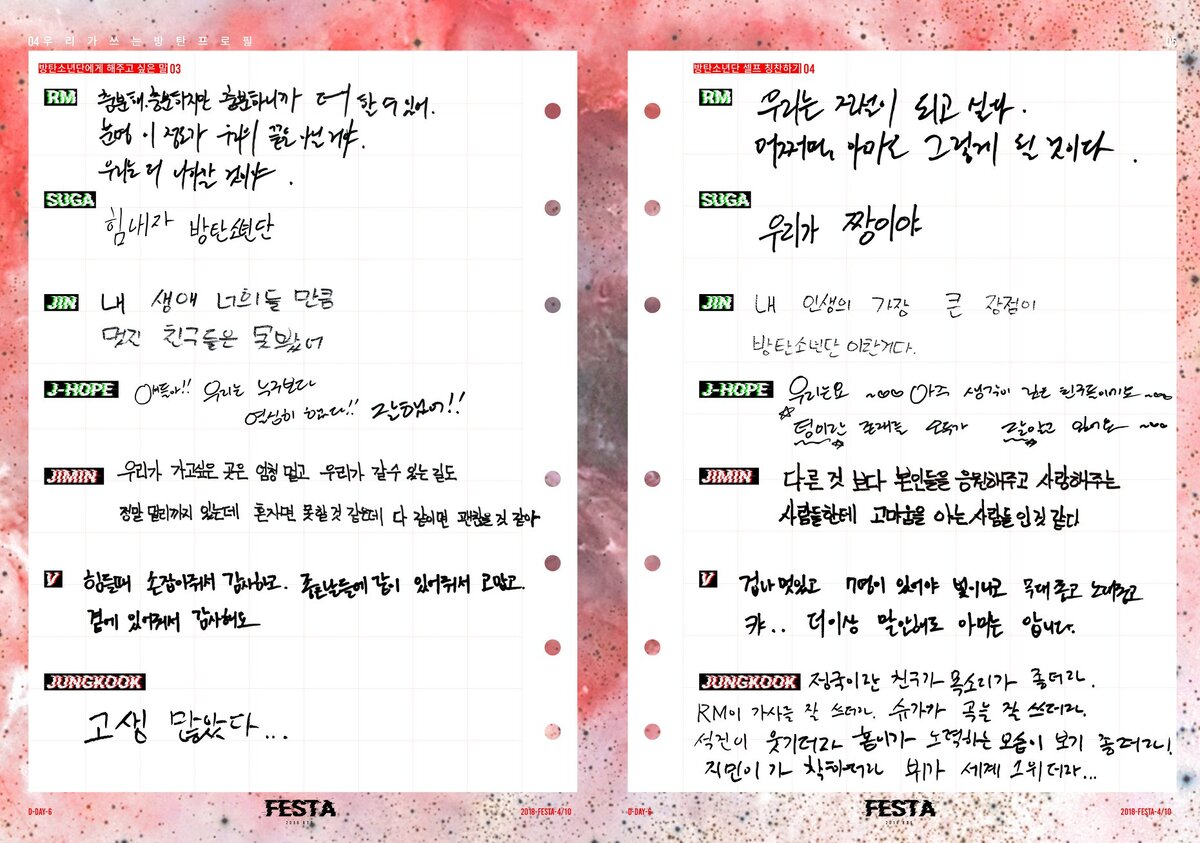 04 우리가쓰는방탄프로필
방탄소년단에게 해주고 싶은 말 03
RM
충분해. 충분하지만 충분하니까 더 할 수 있어.
분명 이 정도가 우리의 끝은 아닐 거야.
우리는 더 나아갈 것이야.
SUGA
힘내자 방탄소년단
JIN
내 생애 너희들 만큼
멋진 친구들은 못봤어
J-HOPE
얘들아!! 우리는 누구보다
열심히 했다!! 잘했어!!
JIMIN
우리가 가고싶은 곳은 엄청 멀고 우리가 갈수 있는 길도
정말 멀리까지 있는데 혼자면 못할것 같은데 다 같이면 괜찮을것 같아
V
힘들때 손잡아줘서 감사하고. 좋은날들에 같이 있어줘서 고맙고.
곁에 있어줘서 감사해요
JUNGKOOK
고생 많았다...
D-DAY-6
FESTA
2018 BTS
2018-FESTA-4/10
방탄소년단 셀프 칭찬하기 04
RM
우리는 전설이 되고 싶다.
어쩌면, 아마도 그렇게 될 것이다.
SUGA
우리가 짱이야
JIN
내 인생의 가장 큰 장점이
방탄소년단이란게다.
J-HOPE
우리는요 아주 생각이 깊은 친구들이기도
팀이란 존재를 모두가 잘알고 있어요
JIMIN
다른 것 보다 본인들을 응원해주고 사랑해주는
사람들한테 고마움을 아는 사람들인것 같다
V
겁나 멋있고 7명이 있어야 빛이나고 무대좋고 노래좋고
캬.. 더이상 말안해도 아미는 압니다.
JUNGKOOK
정국이란 친구가 목소리가 좋더라.
RM이 가사를 잘 쓰더라. 슈가가 곡을 잘 쓰더라.
석진이 웃기더라 홉이가 노력하는 모습이 보기 좋더라!
지민이가 착하더라 뷔가 세계 1위더라...
D-DAY-6
FESTA
2018 BTS
2018-FESTA-4/10